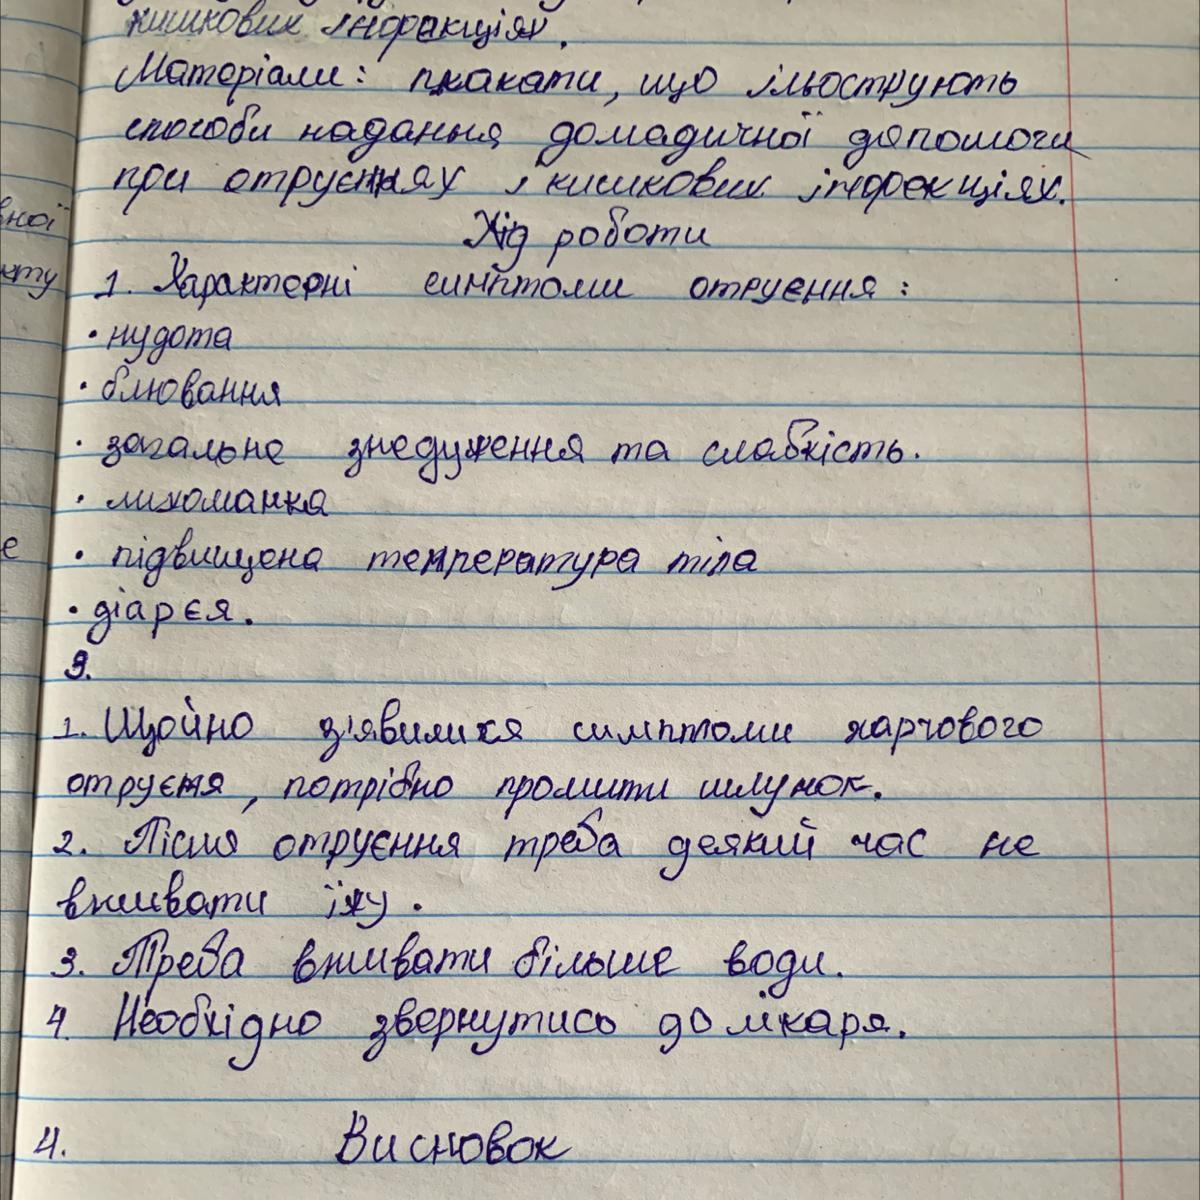 кишкових інфекціях.
Матеріали: плакати, що ілюструють
способи надання домадичної допомоги
при отруєннях і кишкових інфекціях.
Хід роботи
вної
кту
1. Характерні симптоми отруєння:
• нудота
• блювання
• загальне знедуження та слабкість.
• лихоманка
е
• підвищена температура тіла
• діарєя.
3.
1. Щойно з'явилися симптоми харчового
отруєня, потрібно промити шлунок.
2. Після отруєння треба деякий час не
вживати їжу.
3. Треба вживати більше води.
4. Необхідно звернутись до лікаря.
4. Висновок